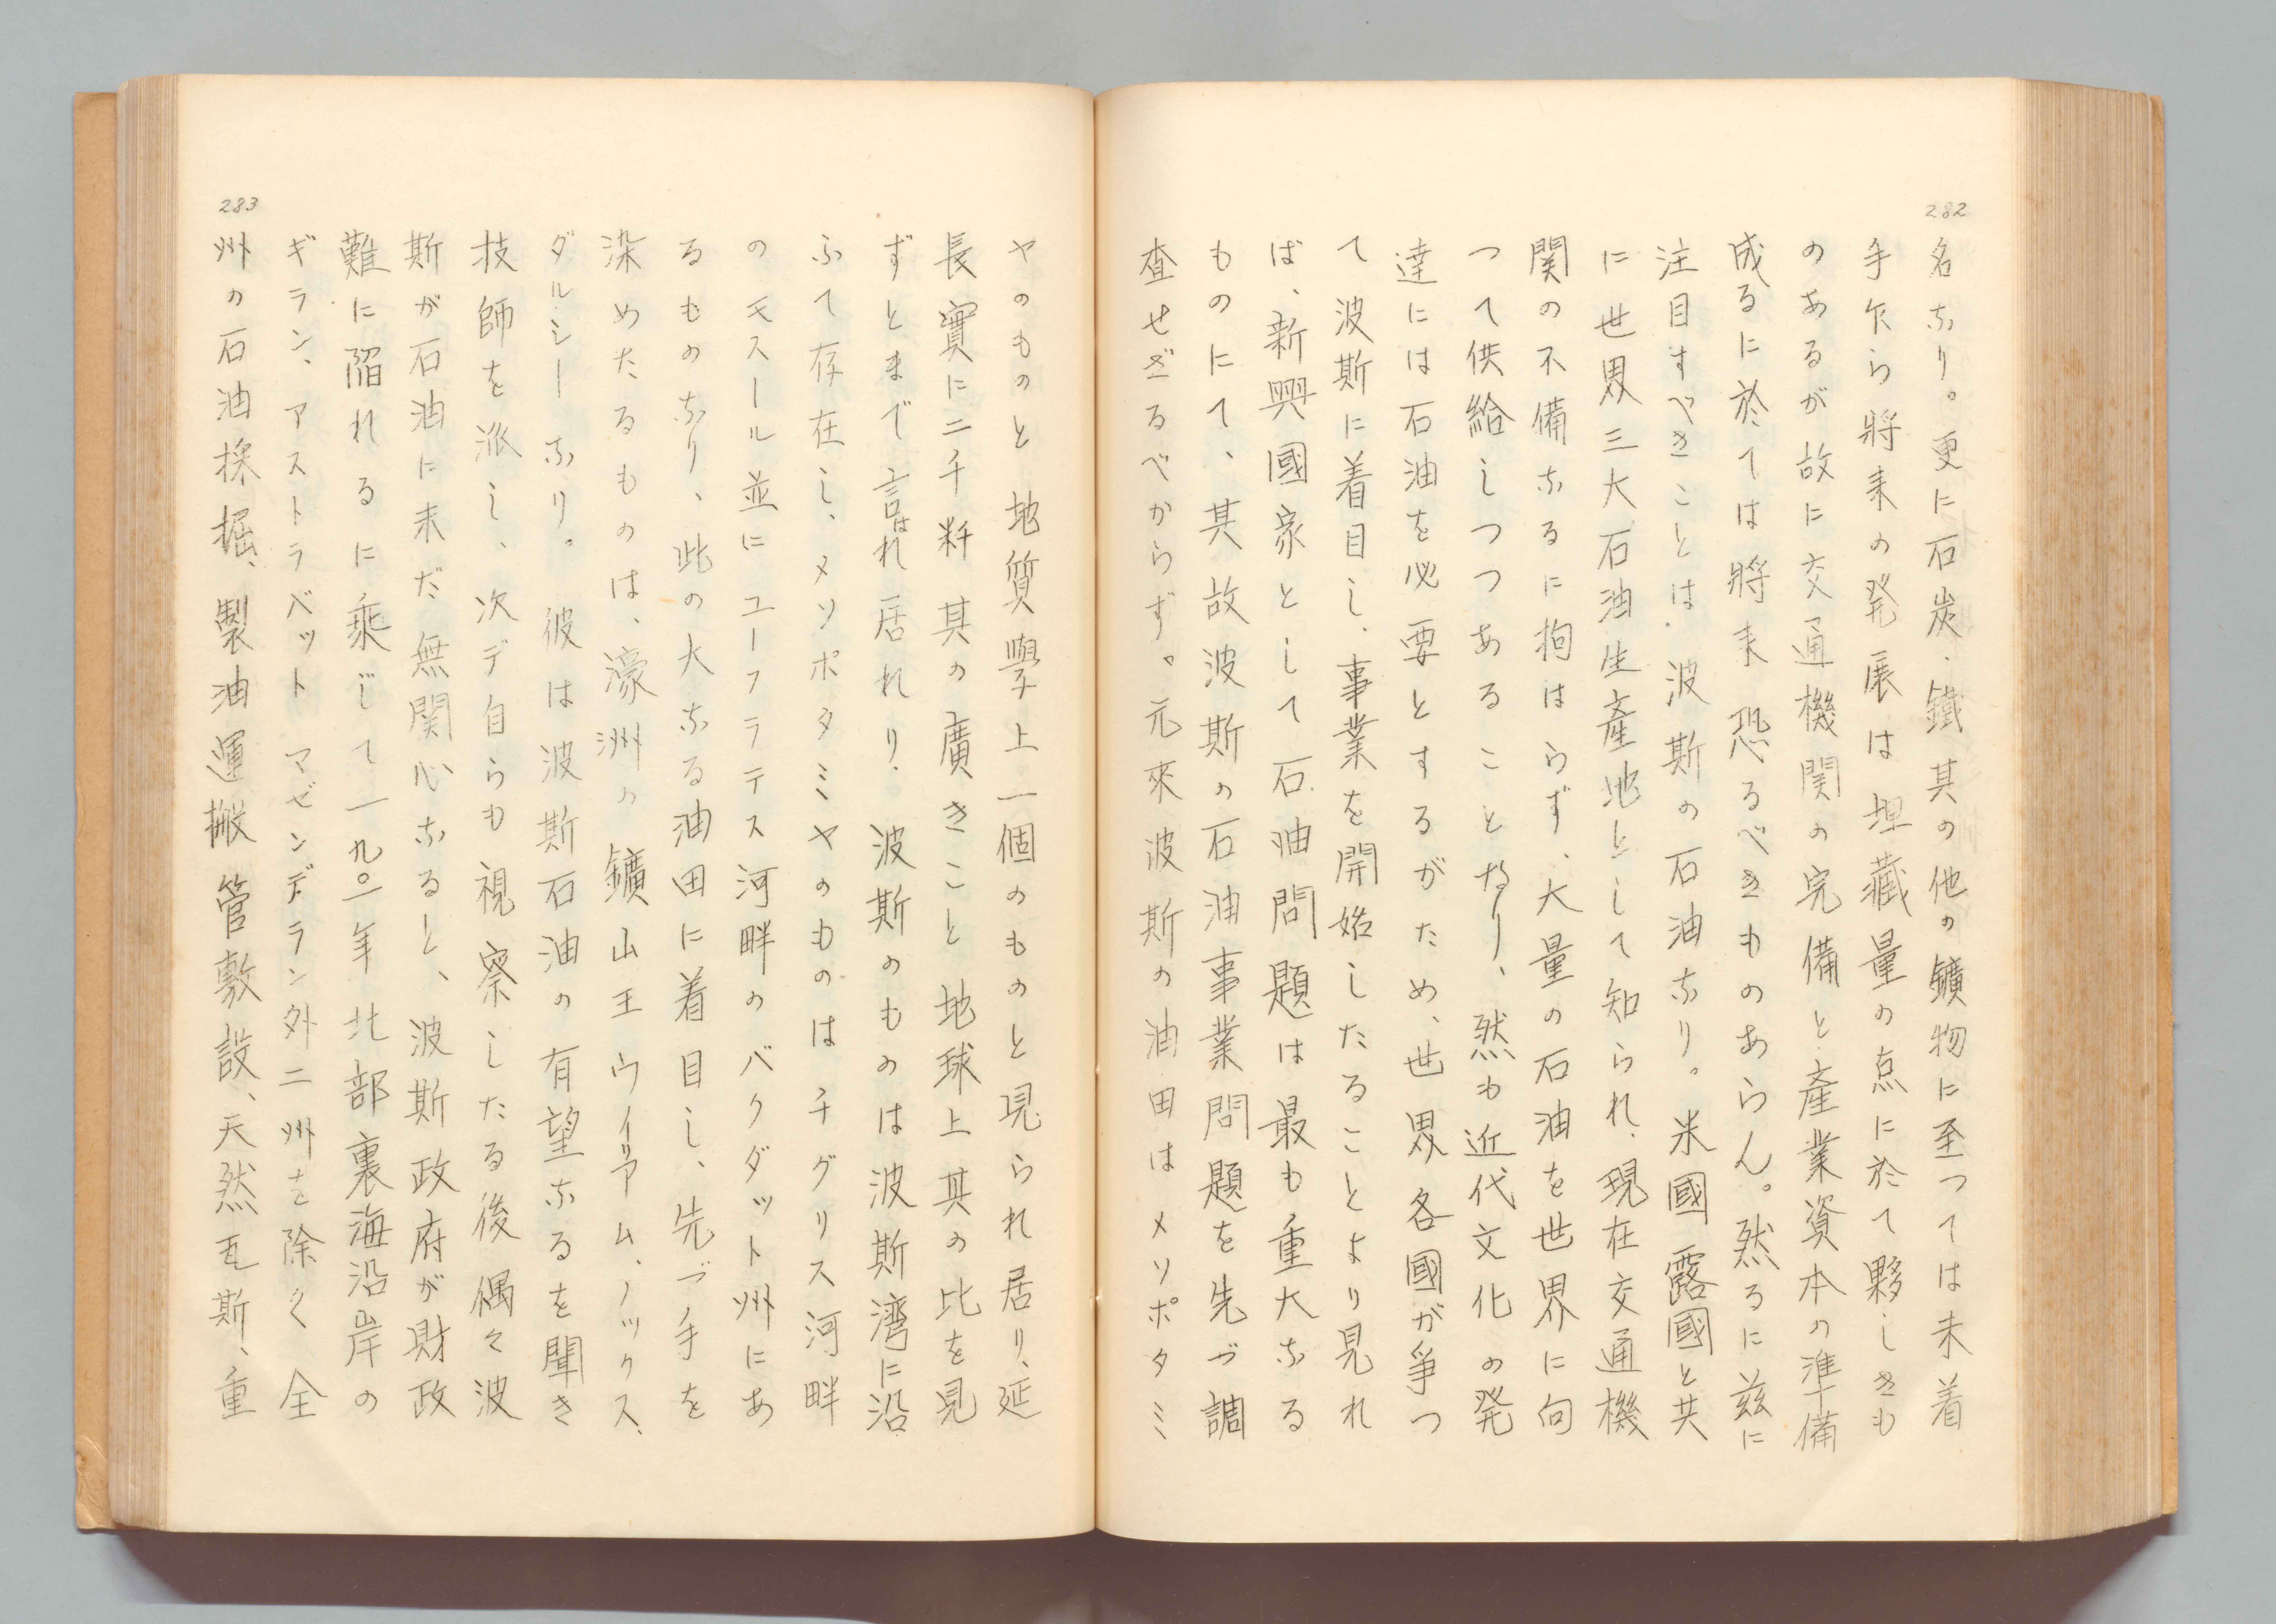 282
名なり。更に石炭、鐵其の他の鑛物に至つては未着
手乍ら將来の発展は埋藏量の点に於て夥しきも
のあるが故に交通機関の完備と產業資本の準備
成るに於ては將来恐るべきものあらん。然るに茲に
注目すべきことは、波斯の石油なり。米國露國と共
に世界三大石油生產地として知られ、現在交通機
関の不備なるに拘はらず、大量の石油を世界に向
つて供給しつつあることなり、然も近代文化の発
達には石油を必要とするがため、世界各國が爭つ
て波斯に着目し、事業を開始したることより見れ
ば、新興國家として石油問題は最も重大なる
ものにて、其故波斯の石油事業問題を先づ調
査せざるべからず。元來波斯の油田はメソポタミ
ヤのものと地質學上一個のものと見られ居り、延
長實に二千粁其の廣きこと地球上其の比を見
ずとまで言はれ居れり。波斯のものは波斯湾に沿
ふて存在し、メソポタミヤのものはチグリス河畔
のモスール並にユーフラテス河畔のバクダット州にあ
るものなり、此の大なる油田に着目し、先づ手を
染めたるものは、濠洲の鑛山王ウイリアム、ノックス、
ダルシーなり。彼は波斯石油の有望なるを聞き
技師を派し、次デ自らも視察したる後偶々波
斯が石油に未だ無関心なると、波斯政府が財政
難に陥れるに乘じて一九〇一年北部裏海沿岸の
ギラン、アストラベット マゼンデラン外二州を除く全
州の石油採掘、製油運搬管敷設、天然瓦斯、重
283